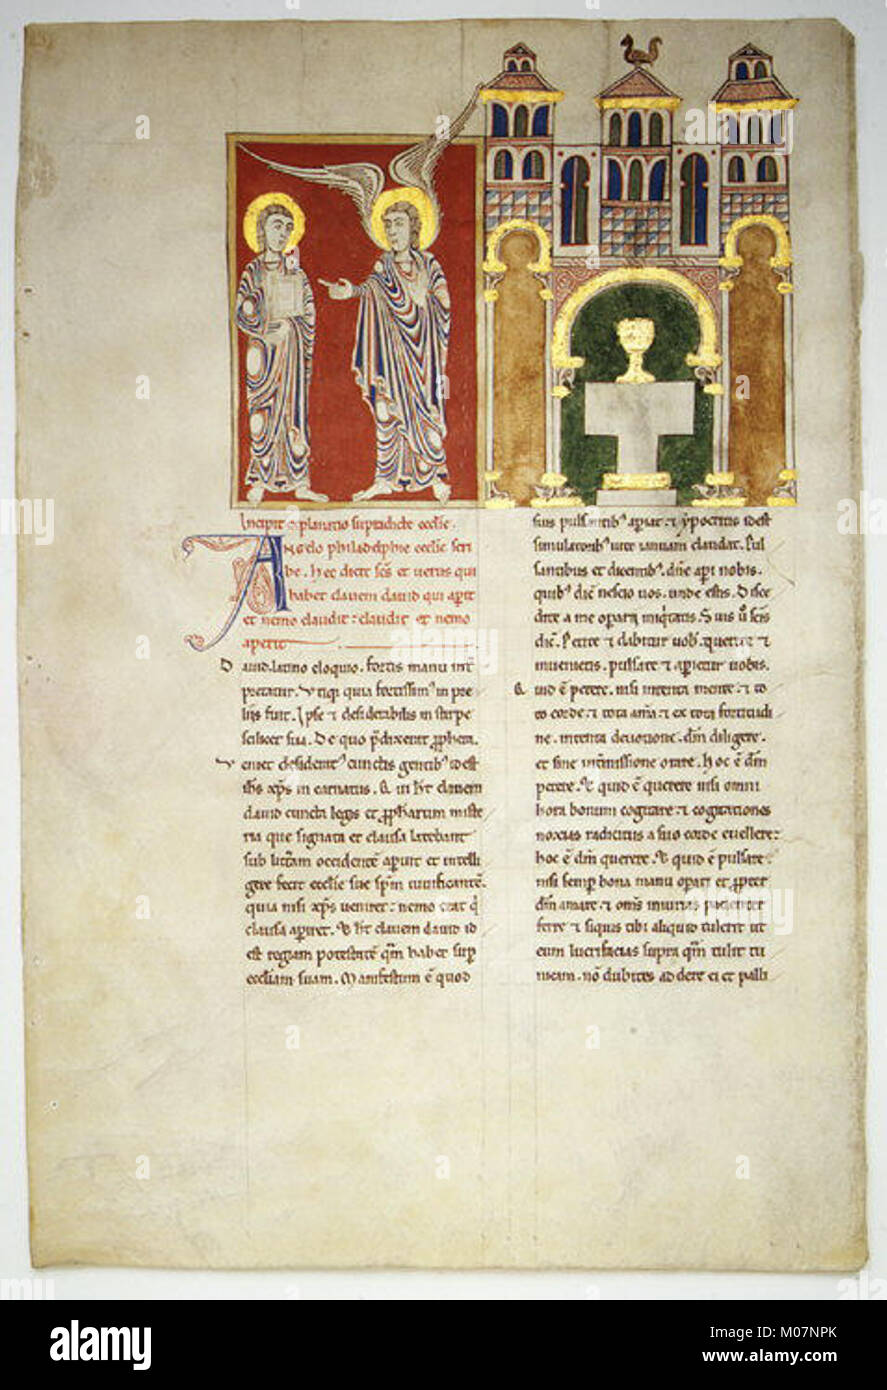 Incipit explanatio supradicte ecclie.
Angelo philadelphie ecclie scri
be. Hec dicit scs et verus qui
habet clavem david qui aperit
et nemo claudit: claudit et nemo
aperit
David. latino eloquio. fortis manu int
pretatur. Utiqi quia fortissim' in pre
liis fuit. Ipse et desiderabilis in stirpe
scilicet sua. De quo pdixerunt pphete.
veniet desiderat' cunctis gentib' id est
ihs xps in carnatus. Qui ht clavem
david cuncta legis et ppharum miste
ria que signata et clausa latebant
sub littam occidente aperuit et intelli
gere fecit ecclie sue spm vivificante.
quia nisi xps veniret: nemo erat q
clausa aperiret. Et ht clavem david id
est regiam potestate qm habet sup
eccliam suam. Manifestum e quod
suis pulsantib' aperiat: et ypocritis id est
simulatorib' vite ianuam claudat. Pul
santibus et dicentib'. dne aperi nobis.
quib' dic nescio vos. unde estis. Disce
dite a me operarii iniqitatis. Suis u scis
dic. Petite et dabitur vob. querite et
invenietis. pulsate et aperietur vobis.
Quid e petere. nisi intenta mente. et to
to corde. et tota aia. et ex tota fortitudi
ne. intenta devotione. dm diligere.
et sine intmissione orare. Hoc e dm
petere. Et quid e querere nisi omni
hora bonum cogitare. et cogitationes
noxias radicitus a suo corde evellere:
hoc e dm querere. Et quid e pulsare.
nisi semp bona manu operari et ppter
dm amare. et oms iniurias pacienter
ferre et siquis tibi aliquid tulerit ut
eum lucrifacias supra qm tulit tu
nicam. no dubites ad dere ei et palli
alamy
Image ID: M07NPK
www.alamy.com